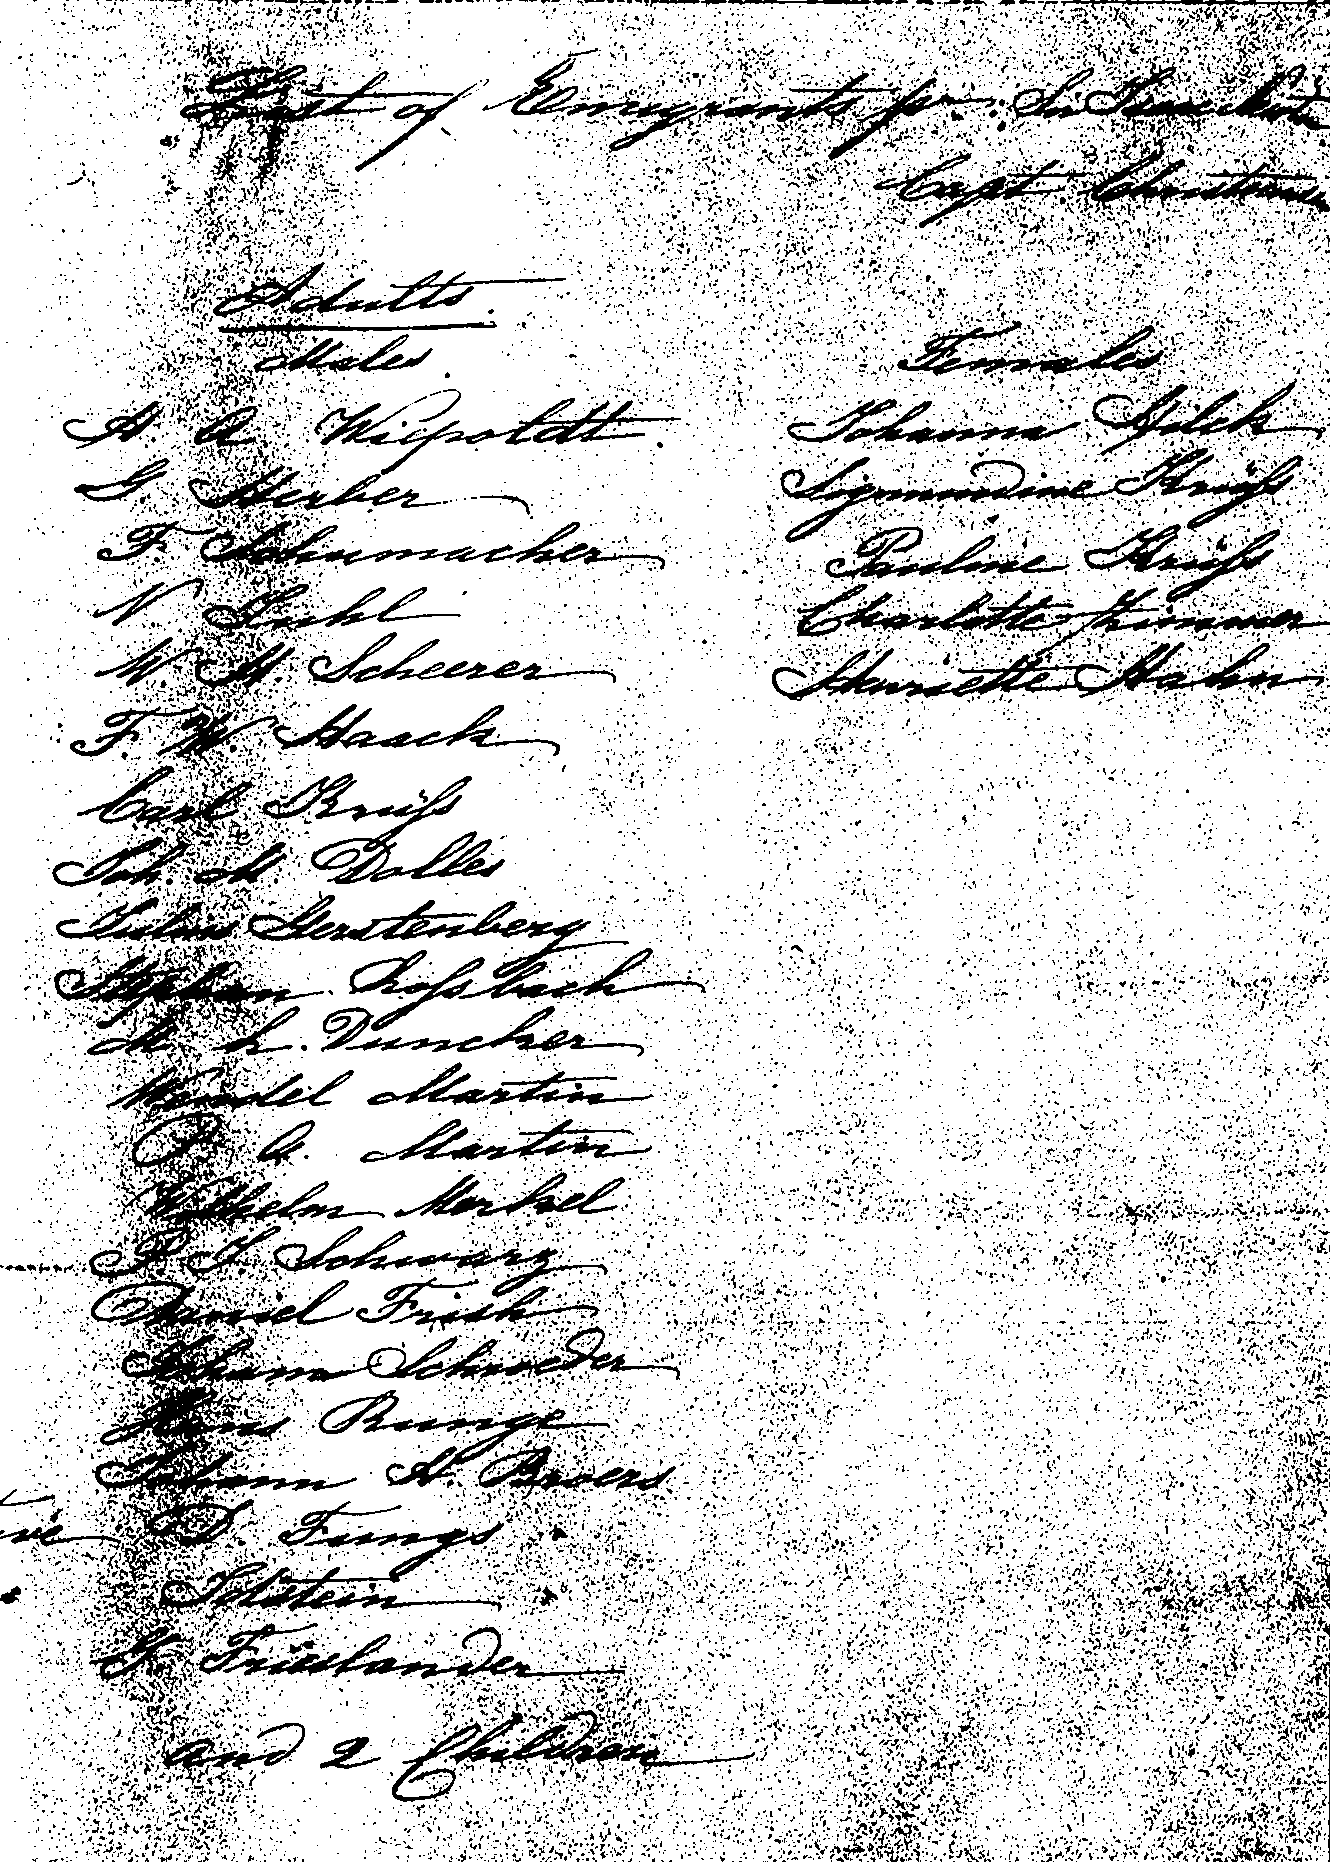 List of Emigrants pr. Sir Isaac Newton
Capt Christensen
Adults
Males
H A Wiepoldtt
G Herber
F Schumacher
N Kuhl
W H Scheerer
F. W Haack
Carl Kruss
Joh M Dalles
Julius Gerstenberg
Stephan Rossbach
M L. Duncker
Wendel Martin
P. A. Martin
Wilhelm Merkel
P. J. Schwarz
Daniel Frish
Johann Schroeder
Hans Runge
Johann H. Broers
D. Fungs
Holstein
G Frieslander
and 2 Children
Females
Johanna Hilck
Sigmundine Kruss
Pauline Kruss
Charlotte Zimmer
Henriette Hahn
ve